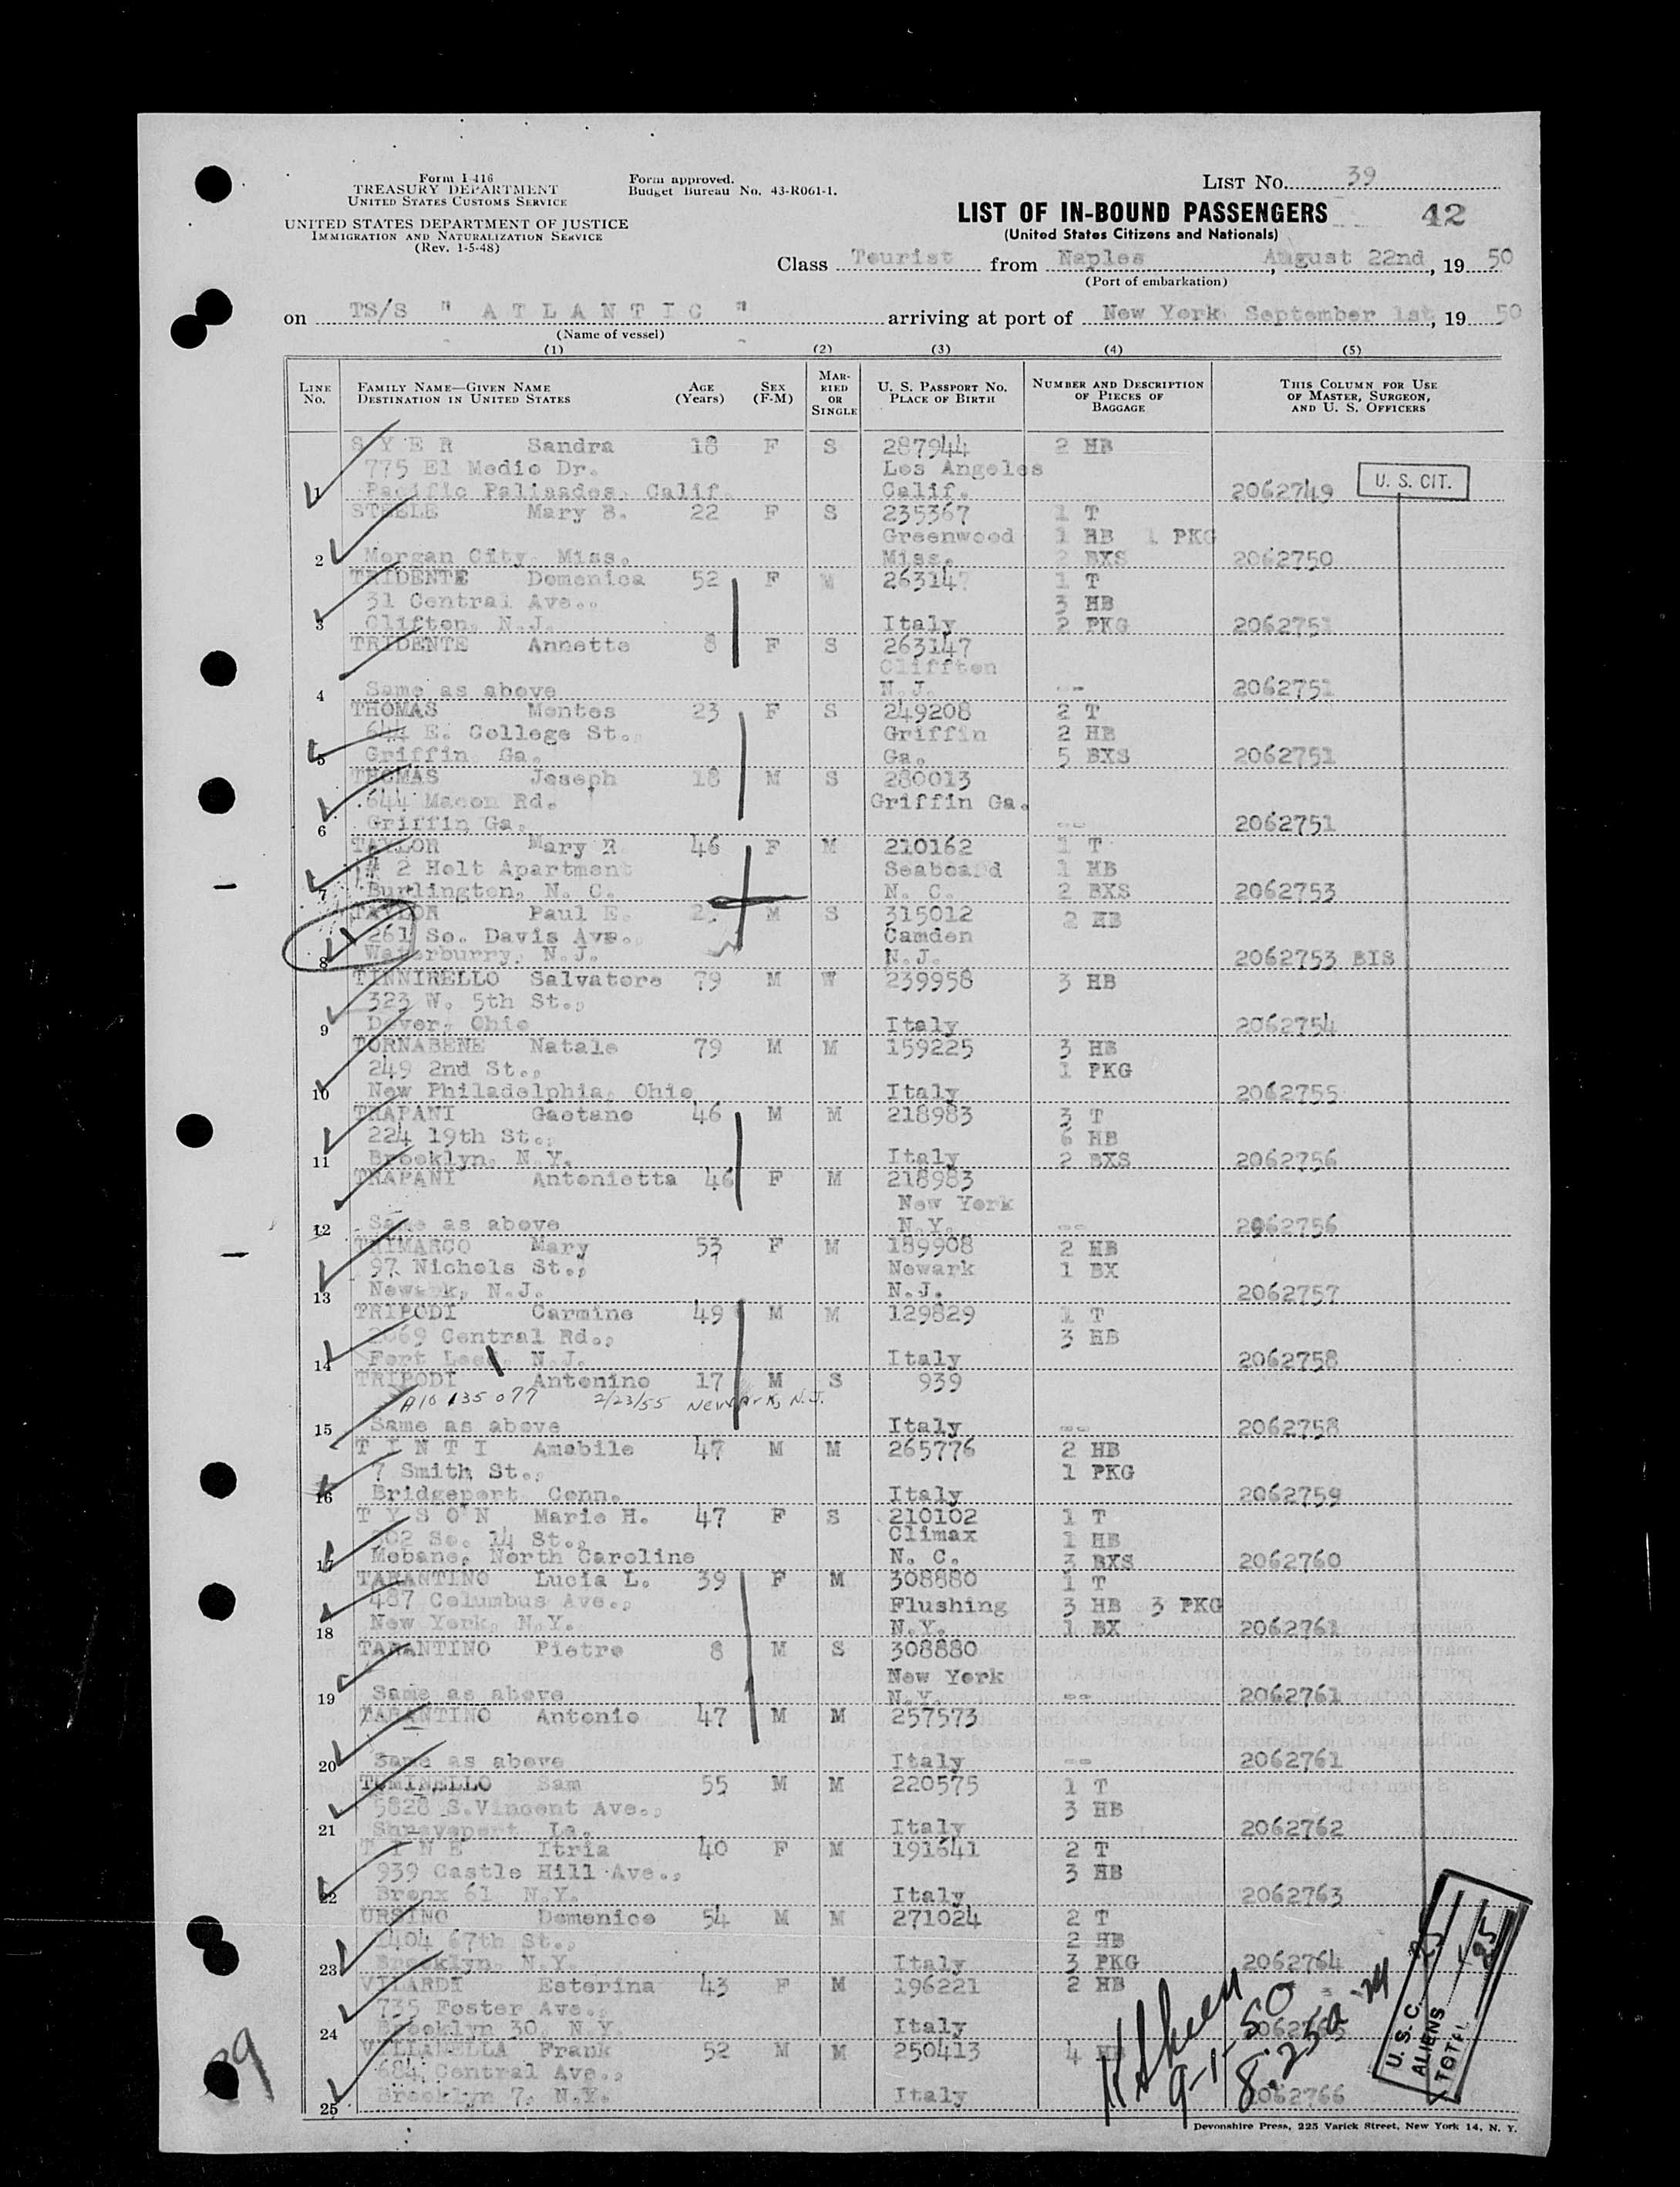 Form I-416
TREASURY DEPARTMENT
UNITED STATES CUSTOMS SERVICE
UNITED STATES DEPARTMENT OF JUSTICE
IMMIGRATION AND NATURALIZATION SERVICE
(Rev. 1-5-48)
Form approved.
Budget Bureau No. 43-R061-1.
LIST NO. 39
LIST OF IN-BOUND PASSENGERS 42
(United States Citizens and Nationals)
Class Tourist from Naples, August 22nd, 19 50
(Port of embarkation)
on TS/S " A T L A N T I C " arriving at port of New York September 1st, 19 50
(Name of vessel)
(1) (2) (3) (4) (5)
LINE NO. FAMILY NAME—GIVEN NAME DESTINATION IN UNITED STATES AGE (Years) SEX (F-M) MARRIED OR SINGLE U. S. PASSPORT NO. PLACE OF BIRTH NUMBER AND DESCRIPTION OF PIECES OF BAGGAGE THIS COLUMN FOR USE OF MASTER, SURGEON, AND U. S. OFFICERS
S Y E R Sandra 18 F S 287944 2 HB
775 El Medio Dr. Los Angeles
1 Pacific Palisades, Calif. Calif. 2062749 U. S. CIT.
STEELE Mary B. 22 F S 235367 1 T
Greenwood 1 HB 1 PKG
2 Morgan City, Miss. Miss. 2 BXS 2062750
TRIDENTE Domenica 52 F M 263147 1 T
31 Central Ave., 3 HB
3 Clifton, N.J. Italy 2 PKG 2062751
TRIDENTE Annette 8 F S 263147
Cliffton
4 Same as above N.J. -- 2062751
THOMAS Montes 23 F S 249208 2 T
644 E. College St., Griffin 2 HB
5 Griffin, Ga. Ga. 5 BXS 2062751
THOMAS Joseph 18 M S 280013
644 Macon Rd. Griffin Ga.
6 Griffin Ga. -- 2062751
TAYLOR Mary R. 46 F M 210162 1 T
# 2 Holt Apartment Seaboard 1 HB
7 Burlington, N. C. N. C. 2 BXS 2062753
TAYLOR Paul E. M S 315012 2 HB
261 So. Davis Ave., Camden
8 Waterburry, N.J. N.J. 2062753 BIS
TINNIRELLO Salvatore 79 M W 239958 3 HB
323 W. 5th St.,
9 Dover, Ohio Italy 2062754
TORNABENE Natale 79 M M 159225 3 HB
249 2nd St., 1 PKG
10 New Philadelphia, Ohio Italy 2062755
TRAPANI Gaetano 46 M M 218983 3 T
224 19th St., 6 HB
11 Brooklyn, N.Y. Italy 2 BXS 2062756
TRAPANI Antonietta 46 F M 218983
New York
12 Same as above N.Y. -- 2062756
TRIMARCO Mary 53 F M 189908 2 HB
97 Nichols St., Newark 1 BX
13 Newark, N.J. N.J. 2062757
TRIPODI Carmine 49 M M 129829 1 T
2069 Central Rd., 3 HB
14 Fort Lee, N.J. Italy 2062758
TRIPODI Antonino 17 M S 939
A10 135 077 2/23/55 Newark, N.J.
15 Same as above Italy -- 2062758
T I N T I Amabile 47 M M 265776 2 HB
7 Smith St., 1 PKG
16 Bridgeport Conn. Italy 2062759
T Y S O N Marie H. 47 F S 210102 1 T
302 So. 14 St., Climax 1 HB
17 Mebane, North Caroline N. C. 3 BXS 2062760
TARANTINO Lucia L. 39 F M 308880 1 T
487 Columbus Ave., Flushing 3 HB 3 PKG
18 New York, N.Y. N.Y. 1 BX 2062761
TARANTINO Pietro 8 M S 308880
New York
19 Same as above N.Y. -- 2062761
TARANTINO Antonio 47 M M 257573
20 Same as above Italy -- 2062761
TOMINELLO Sam 55 M M 220575 1 T
5828 S.Vincent Ave., 3 HB
21 Shreveport La. Italy 2062762
T I N E Itria 40 F M 191641 2 T
939 Castle Hill Ave., 3 HB
22 Bronx 61 N.Y. Italy 2062763
URSINO Domenico 54 M M 271024 2 T
1404 67th St., 2 HB
23 Brooklyn, N.Y. Italy 3 PKG 2062764
VILARDI Esterina 43 F M 196221 2 HB
735 Foster Ave.,
24 Brooklyn 30, N.Y. Italy
VILLANELLA Frank 52 M M 250413 4 HB
684 Central Ave.,
25 Brooklyn 7, N.Y. Italy 2062766
9-1-50
8:25a
U. S. C. 25
ALIENS
TOTAL 25
39
Devonshire Press, 225 Varick Street, New York 14, N. Y.